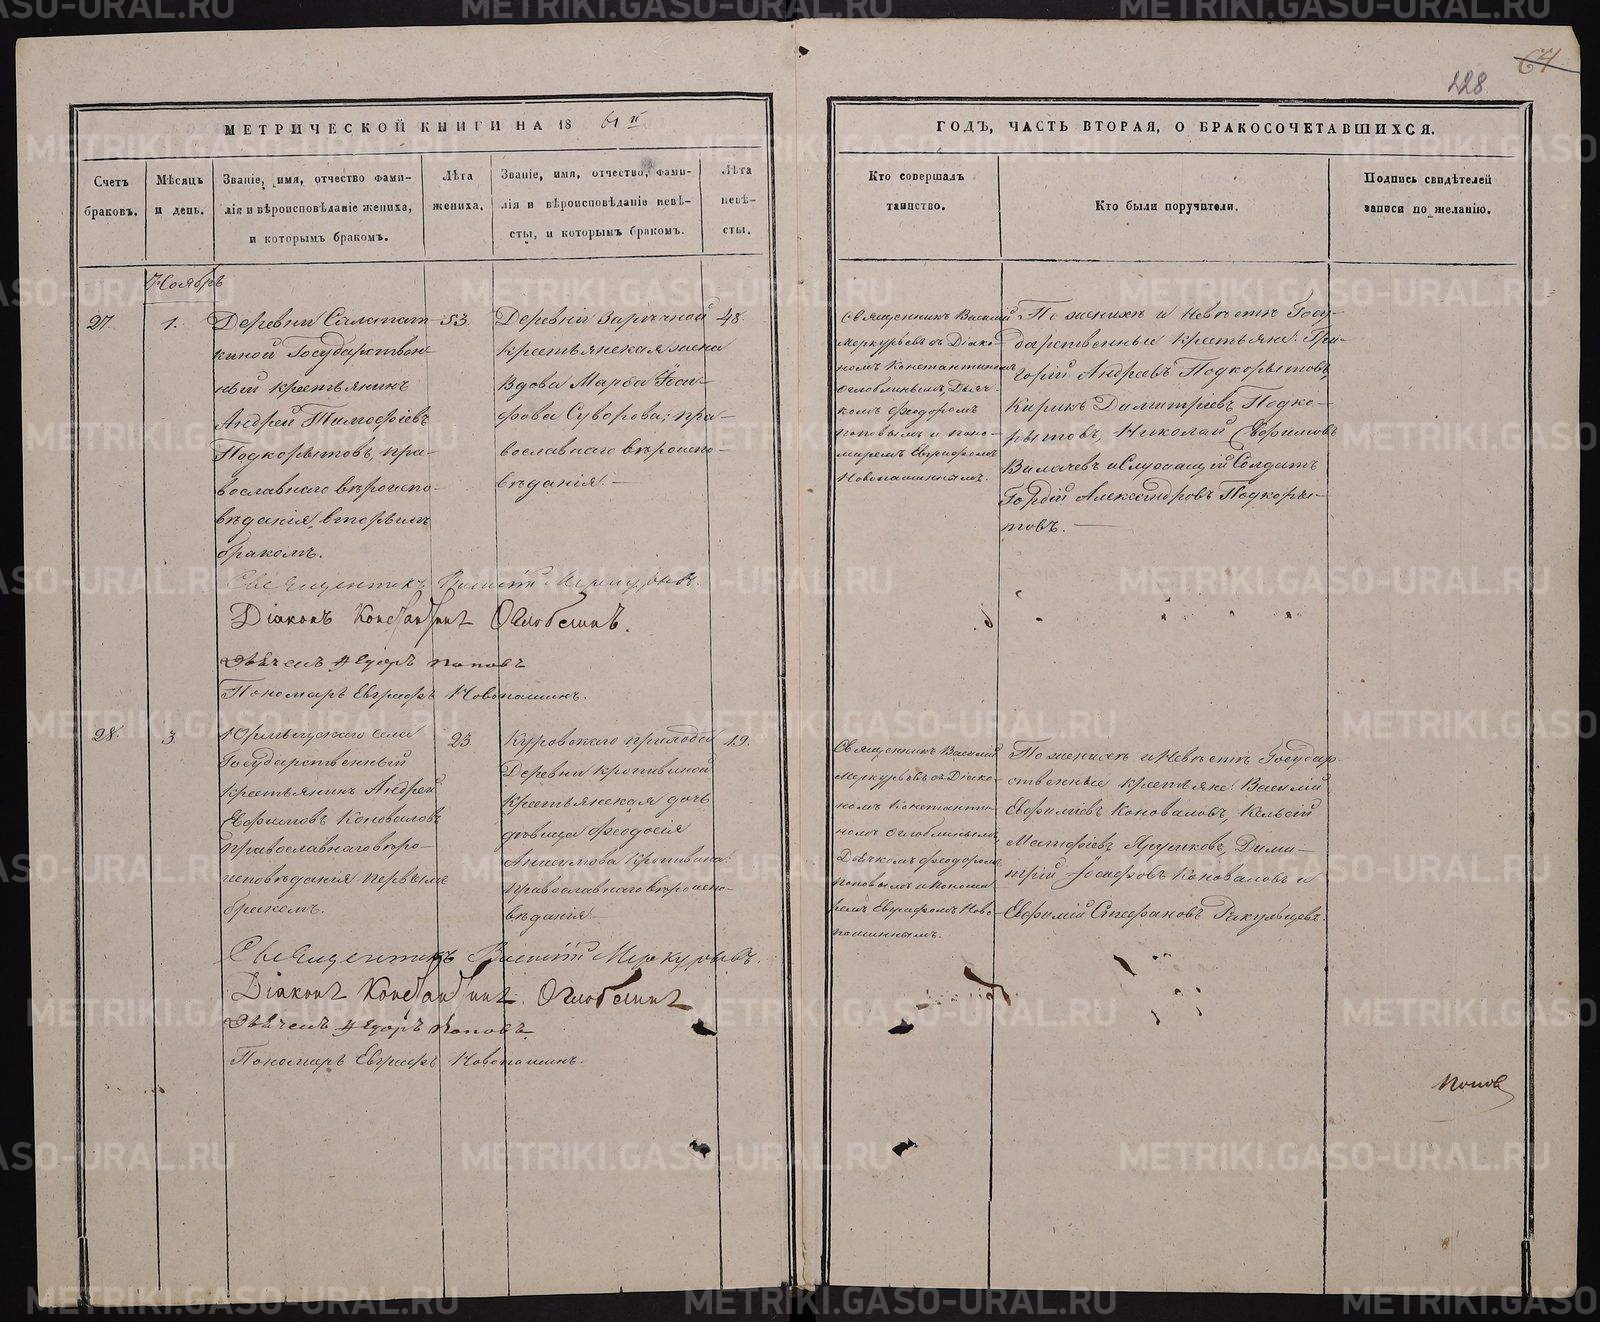 64
228
МЕТРИЧЕСКОЙ КНИГИ НА 18 61й
ГОДЪ, ЧАСТЬ ВТОРАЯ, О БРАКОСОЧЕТАВШИХСЯ.
Счетъ браковъ.
Мѣсяцъ и день.
Званіе, имя, отчество фами-
лія и вѣроисповѣданіе жениха,
и которымъ бракомъ.
Лѣта жениха.
Званіе, имя, отчество, фами-
лія и вѣроисповѣданіе невѣ-
сты, и которымъ бракомъ.
Лѣта невѣ-
сты.
Кто совершалъ
таинство.
Кто были поручители.
Подпись свидѣтелей
записи по желанію.
Ноябрь
27.
1.
Деревни
киной Государствен-
ный крестьянинъ
Андрей Тимофѣевъ
Подкорытовъ, пра-
вославнаго вѣроиспо-
вѣданія, вторымъ
бракомъ.
53.
Деревни Зарѣчной
крестьянская жена
Вдова Марѳа Іоси-
фова Суворова; пра-
вославнаго вѣроиспо-
вѣданія. —
48.
Священникъ Василій
Меркурьевъ съ Діако-
номъ Константиномъ
Оглоблинымъ, Дьяч-
комъ Ѳеодоромъ
Поповымъ и поно-
маремъ Евграфомъ
Новопашинымъ.
По женихѣ и невѣстѣ Госу-
дарственные крестьяне: Гри-
горій Андреевъ Подкорытовъ,
Кирикъ Димитріевъ Подко-
рытовъ, Николай Ефимовъ
и Служащій Солдатъ
Гордій Александровъ Подкоры-
товъ. —
Священникъ Василій Меркурьевъ.
Діаконъ Константинъ Оглоблинъ.
Дьячекъ Ѳедоръ Поповъ
Пономарь Евграфъ Новопашинъ.
28.
3.
Юрмытскаго села
Государственный
крестьянинъ Андрей
Ефимовъ Коноваловъ
православнаго вѣро-
исповѣданія первымъ
бракомъ.
23.
Куровскаго прихода
Деревни Кропивиной
крестьянская дочь
дѣвица Ѳеодосія
Анисимова Кропивина.
православнаго вѣроиспо-
вѣданія
19.
Священникъ Василій
Меркурьевъ съ Діако-
номъ Константи-
номъ Оглоблинымъ,
Дьячкомъ Ѳеодоромъ
Поповымъ и Понома-
ремъ Евграфомъ Ново-
пашинымъ.
По женихѣ и невѣстѣ Государ-
ственные крестьяне: Василій
Ефиміевъ Коноваловъ,
Матфіевъ Дими-
трій Іосифовъ Коноваловъ и
Ефимій Стефановъ
Священникъ Василій Меркурьевъ.
Діаконъ Константинъ Оглоблинъ
Дьячекъ Ѳедоръ Поповъ
Пономарь Евграфъ Новопашинъ.
Попов
METRIKI.GASO-URAL.RU